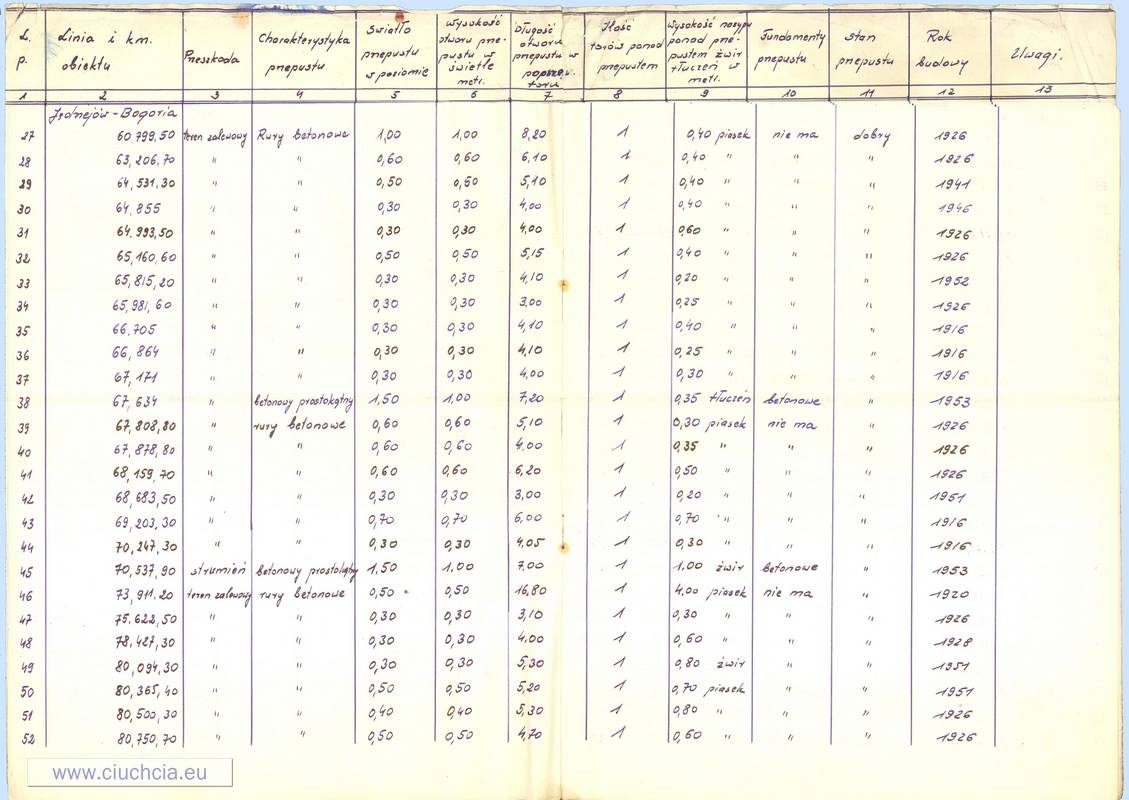 L. p. Linia i km. obiektu Przeszkoda Charakterystyka przepustu Światło przepustu w poziomie Wysokość otworu przepustu w świetle metr. Długość otworu przepustu w poprzek toru Ilość torów ponad przepustem Wysokość nasypu ponad przepustem żwir tłuczeń w metr. Fundamenty przepustu Stan przepustu Rok budowy Uwagi.
1 2 3 4 5 6 7 8 9 10 11 12 13
Jędrzejów-Bogoria
27 60.799,50 teren zalewowy Rury betonowe 1,00 1,00 8,20 1 0,40 piasek nie ma dobry 1926
28 63,206,70 " " 0,60 0,60 6,10 1 0,40 " " " 1926
29 64,531,30 " " 0,50 0,50 5,10 1 0,40 " " " 1941
30 64,855 " " 0,30 0,30 4,00 1 0,40 " " " 1946
31 64.993,50 " " 0,30 0,30 4,00 1 0,60 " " " 1926
32 65,160,60 " " 0,50 0,50 5,15 1 0,40 " " " 1926
33 65,815,20 " " 0,30 0,30 4,10 1 0,20 " " " 1952
34 65,981,60 " " 0,30 0,30 3,00 1 0,25 " " " 1926
35 66.705 " " 0,30 0,30 4,10 1 0,40 " " " 1916
36 66,864 " " 0,30 0,30 4,10 1 0,25 " " " 1916
37 67,171 " " 0,30 0,30 4,00 1 0,30 " " " 1916
38 67,634 " betonowy prostokątny 1,50 1,00 7,20 1 0,35 tłuczeń betonowe " 1953
39 67,808,80 " rury betonowe 0,60 0,60 5,10 1 0,30 piasek nie ma " 1926
40 67,878,80 " " 0,60 0,60 4,00 1 0,35 " " " 1926
41 68,159,70 " " 0,60 0,60 6,20 1 0,50 " " " 1926
42 68,683,50 " " 0,30 0,30 3,00 1 0,20 " " " 1951
43 69,203,30 " " 0,70 0,70 6,00 1 0,70 " " " 1916
44 70,247,30 " " 0,30 0,30 4,05 1 0,30 " " " 1916
45 70,537,90 strumień betonowy prostokątny 1,50 1,00 7,00 1 1,00 żwir betonowe " 1953
46 73,911.20 teren zalewowy rury betonowe 0,50 0,50 16,80 1 4,00 piasek nie ma " 1920
47 75.622,50 " " 0,30 0,30 3,10 1 0,30 " " " 1926
48 78,427,30 " " 0,30 0,30 4,00 1 0,60 " " " 1928
49 80,094,30 " " 0,30 0,30 5,30 1 0,80 żwir " " 1951
50 80,365,40 " " 0,50 0,50 5,20 1 0,70 piasek " " 1951
51 80,500,30 " " 0,40 0,40 5,30 1 0,80 " " " 1926
52 80,750,70 " " 0,50 0,50 4,70 1 0,60 " " " 1926
www.ciuchcia.eu